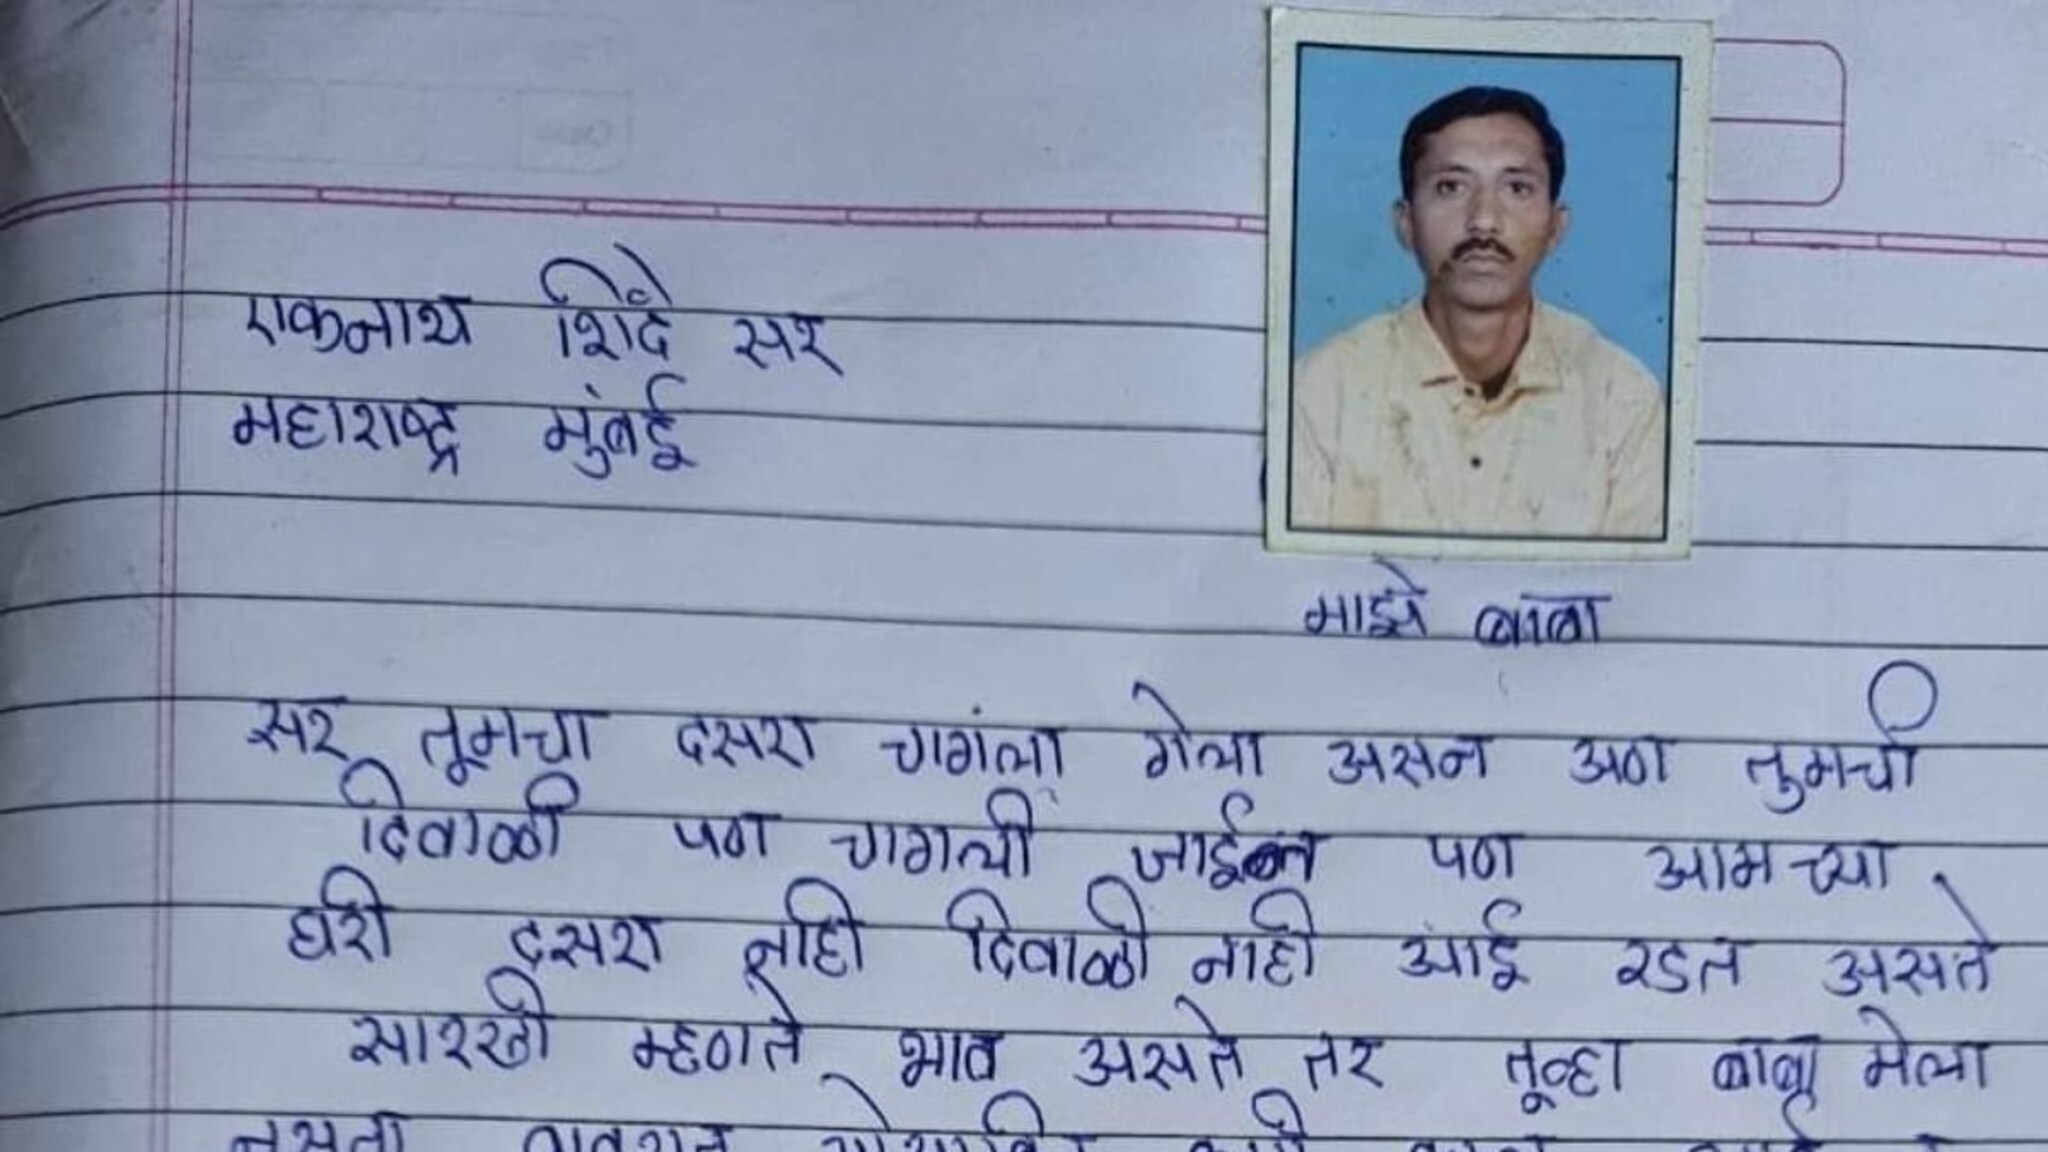 एकनाथ शिंदे सर
महाराष्ट्र मुंबई
माझे बाबा
सर तूमचा दसरा चागंला गेला असन अण तुमची
दिवाळी पण चागली जाईल पण आमच्या
घरी दसरा नाही दिवाळी नाही आई रडत असते
सारखी म्हणते भाव असते तर तूव्हा बाबा मेला
नसता